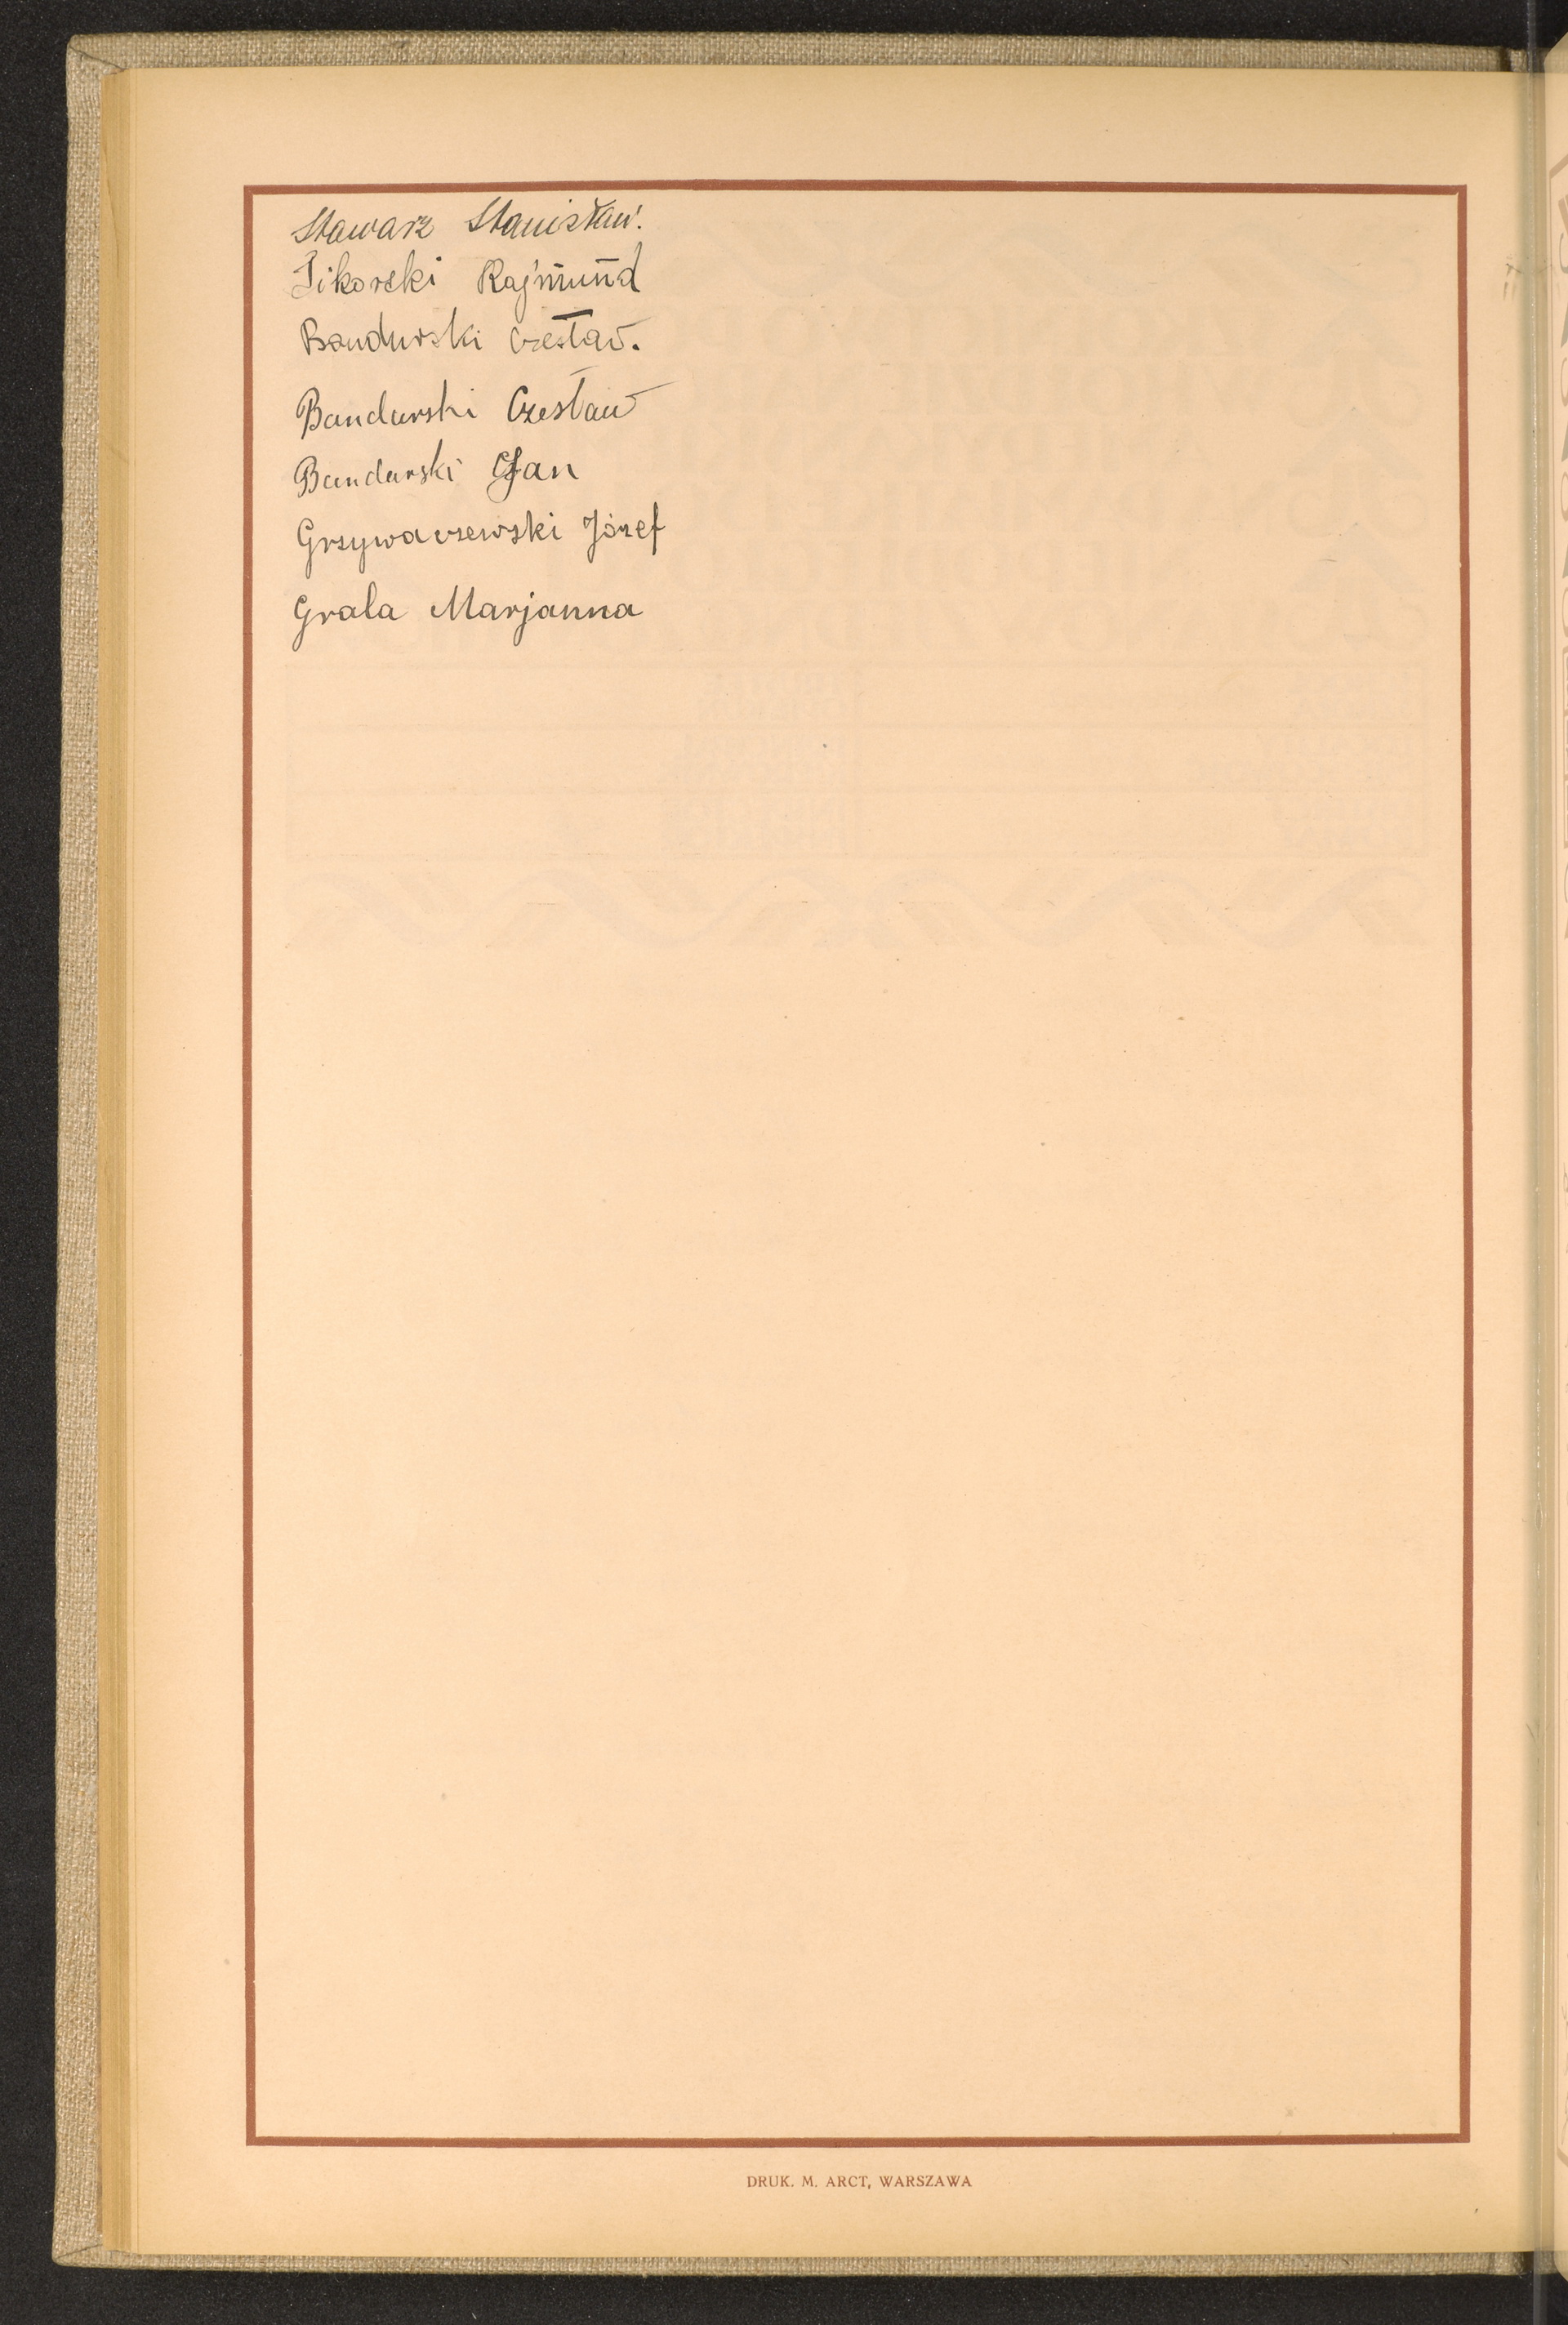 Stawarz Stanisław.
Sikorski Rajmund
Bandurski Czesław.
Bandurski Czesław
Bandurski Jan
Grzywaczewski Józef
Grala Marjanna
DRUK. M. ARCT, WARSZAWA